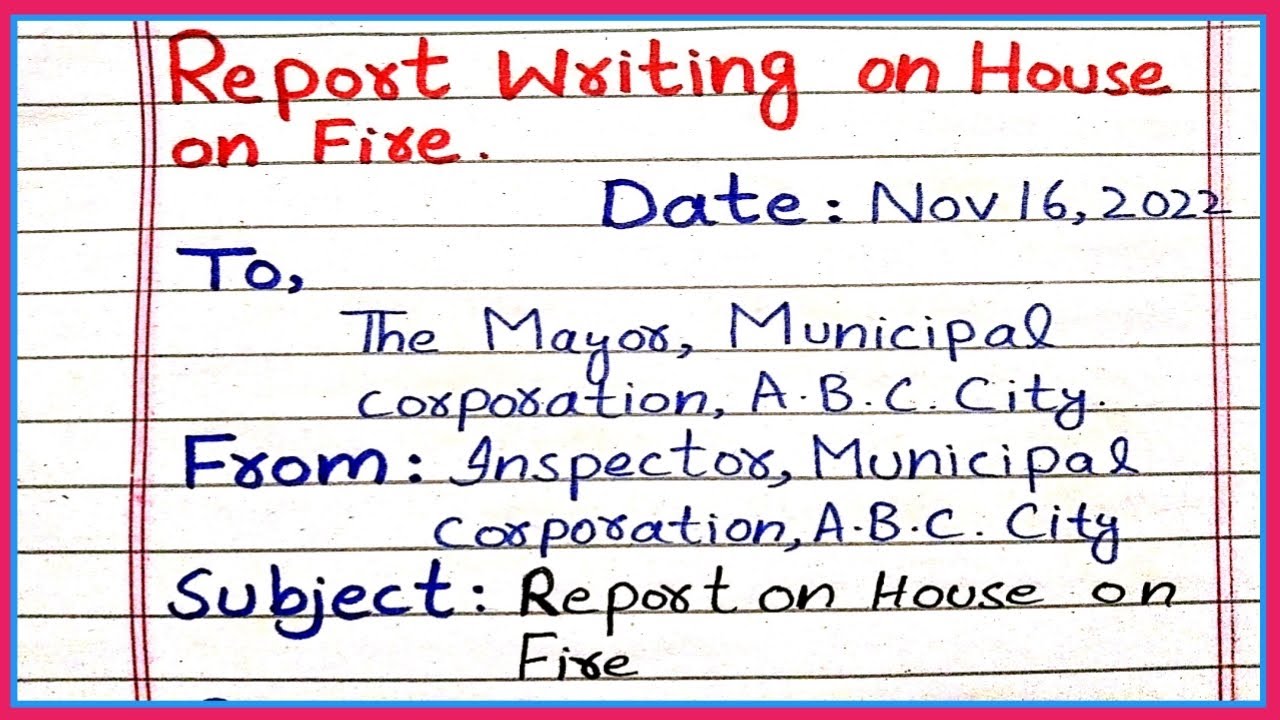 Report Writing on House
on Fire.
Date: Nov 16, 2022
To,
The Mayor, Municipal
corporation, A.B.C. City.
From: Inspector, Municipal
corporation, A.B.C. City
Subject: Report on House on
Fire